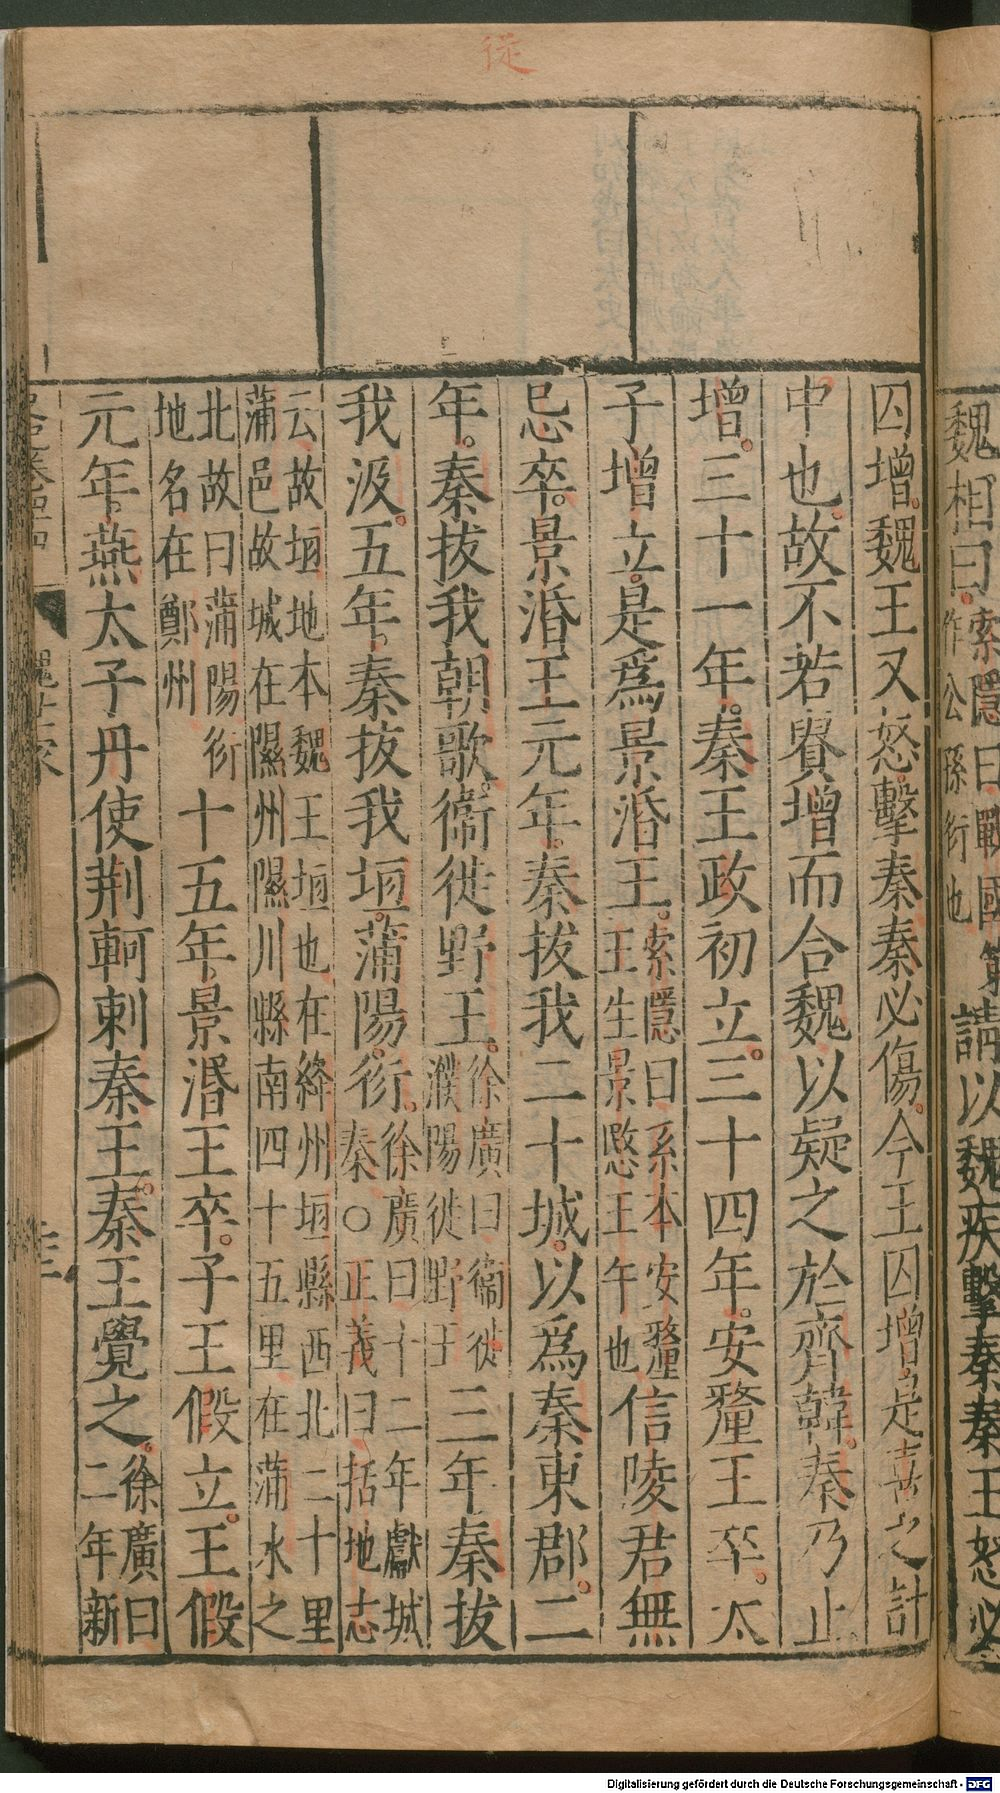 従
魏相曰索隱曰戰國策
作公孫衍也
請以魏疾擊秦秦王怒必
囚增魏王又怒擊秦秦必傷今王囚增是喜之計
中也故不若貴增而合魏以疑之於齊韓秦乃止
增三十一年秦王政初立三十四年安釐王卒太
子增立是爲景湣王索隱曰系本安釐
王生景愍王午也
信陵君無
忌卒景湣王元年秦拔我二十城以爲秦東郡二
年秦拔我朝歌衞徙野王徐廣曰衞徙
濮陽徙野王
三年秦拔
我汲五年秦拔我垣蒲陽衍徐廣曰十二年獻城
秦○正義曰括地志
云故垣地本魏王垣也在絳州垣縣西北二十里
蒲邑故城在隰州隰川縣南四十五里在蒲水之
北故曰蒲陽衍
地名在鄭州
十五年景湣王卒子王假立王假
元年燕太子丹使荆軻刺秦王秦王覺之徐廣曰
二年新
魏世家
Digitalisierung gefördert durch die Deutsche Forschungsgemeinschaft - DFG